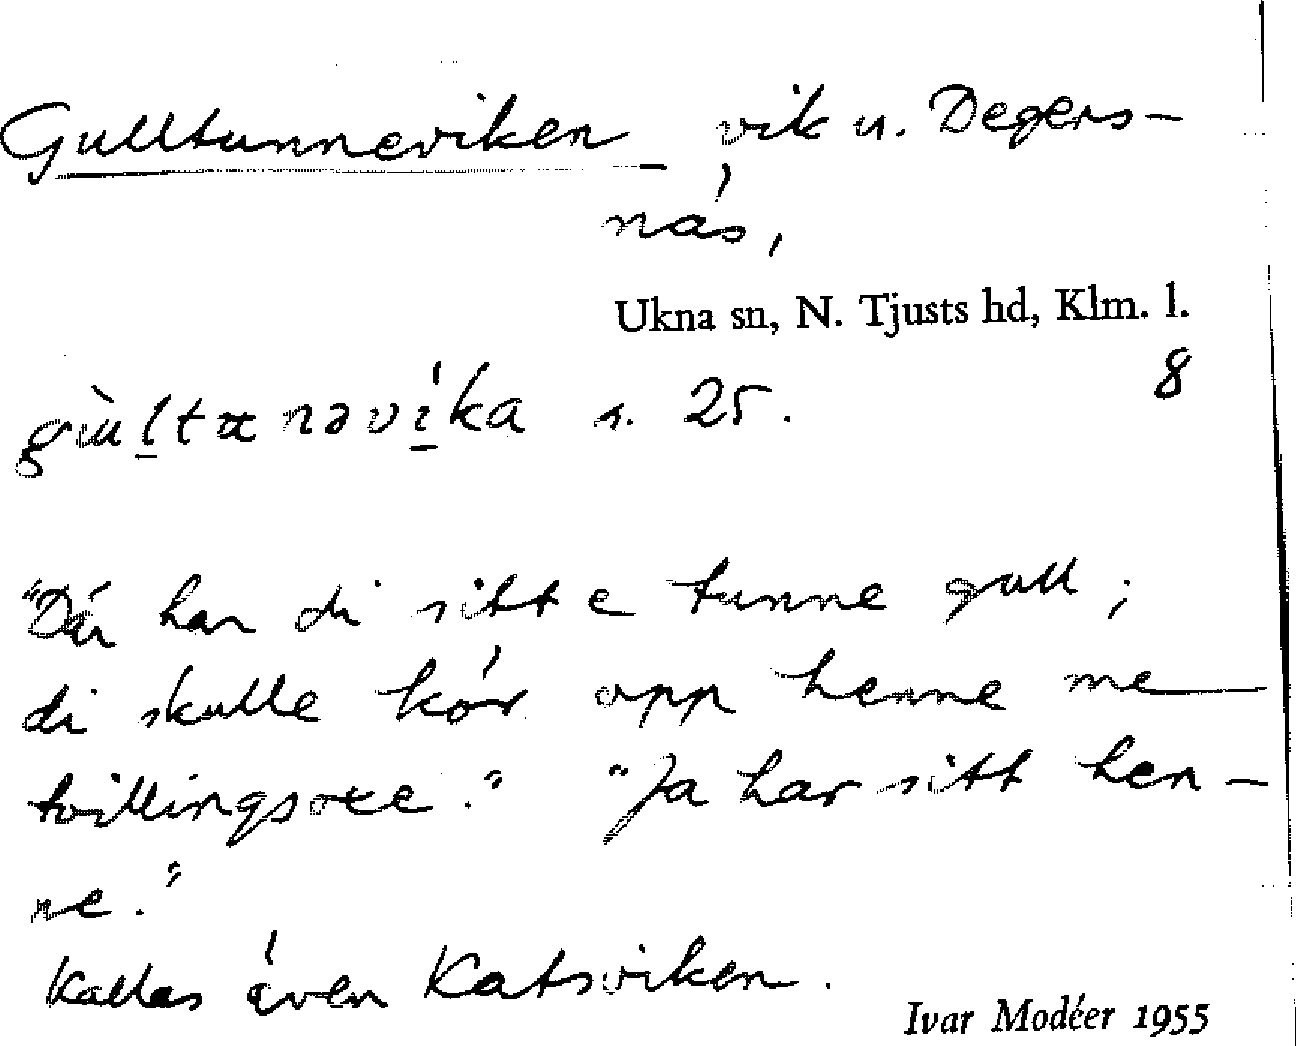 Gulltunneviken vik u. Degers-
näs,
Ukna sn, N. Tjusts hd, Klm. l.
8
s. 25.
"Där har di sitt e tunne gull;
di skulle kör opp henne me
tvillingsoxe." "Ja har sitt hen-
ne."
Kallas även Katsviken.
Ivar Modéer 1955